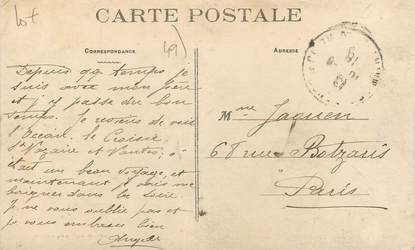 Lot
49)
CARTE POSTALE
CORRESPONDANCE
ADRESSE
Depuis qq temps je
suis avec mon père
et j'y passe du bon
temps. Je reviens de voir
l'Océan, le Croisic
St Nazaire et Nantes, c'
était un beau voyage, et
maintenant je vais me
baigner dans la Loire
Je ne vous oublie pas et
je vous embrasse bien
Mme Jaguen
68 rue Botzaris
Paris